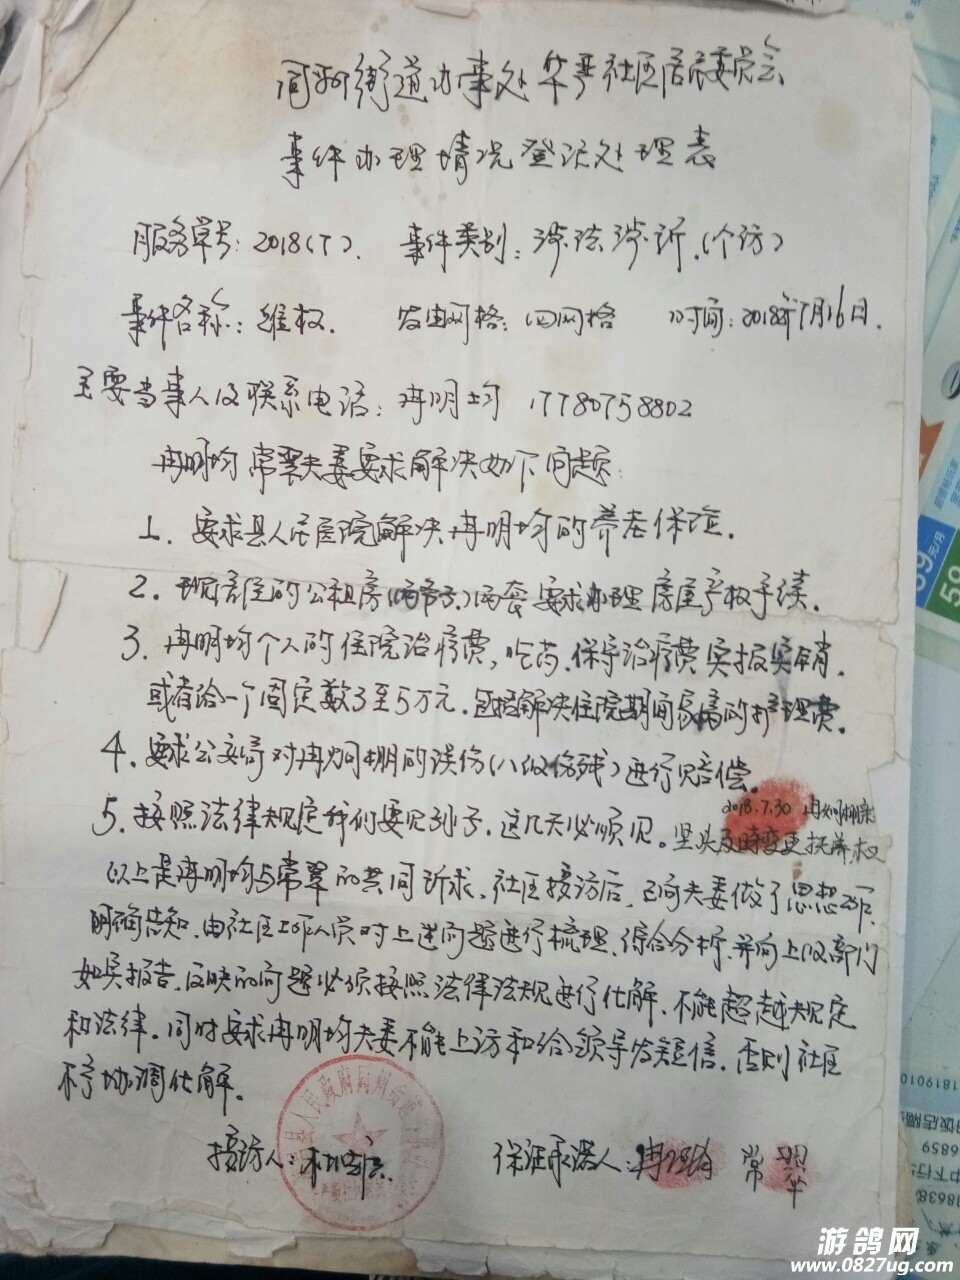 同州街道办事处华严社区居民委员会
事件办理情况登记处理表
服务单号：2018（7）. 事件类别：涉法涉诉.（个访）
事件名称：维权. 发生网格：四网格 时间：2018年7月16日.
主要当事人及联系电话：冉明均 17780758802
冉明均常翠夫妻要求解决如下问题：
1. 要求县人民医院解决冉明均的养老保险.
2. 现居住的公租房 两套要求办理房屋产权手续.
3. 冉明均个人的住院治疗费，吃药.保守治疗费实报实销.
或者给一个固定数3至5万元.包括解决住院期间 的护理费.
4. 要求公安局对冉炯棚的误伤（八级伤残）进行赔偿.
2018.7.30 冉炯棚
5. 按照法律规定我们要见孙子.这几天必须见。 及時变更抚养权
以上是冉明均与常翠的共同诉求.社区接访后，已向夫妻做了思想工作.
明确告知.由社区工作人员对上述问题进行梳理.综合分析.并向上级部门
如实报告.反映的问题必须按照法律法规进行化解.不能超越规定
和法律.同时要求冉明均夫妻不能上访和给领导发短信.否则社区
不予协调化解.
接访人： 保证承诺人：冉明均 常翠
人民政府同州街道
游鸽网
www.0827ug.com
元/月
59
1819010
6859
18638